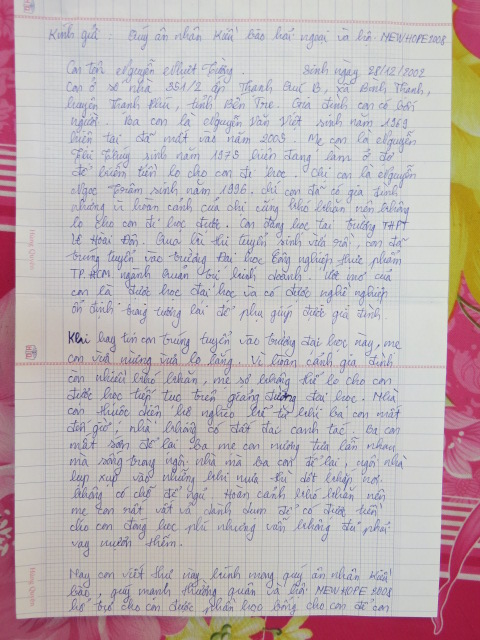 Kính gửi : Quý ân nhân Kiều bào hải ngoại và hội NEWHOPE2008
Con tên Nguyễn Nhựt Trường Sinh ngày 28/12/2002
con ở số nhà 351/2 ấp Thạnh Quí B, xã Bình Thạnh,
huyện Thạnh Phú, tỉnh Bến Tre. Gia đình con có bốn
người. Ba con là Nguyễn Văn Việt sinh năm 1969
hiện tại đã mất vào năm 2009. Mẹ con là Nguyễn
Thị Thúy sinh năm 1973 hiện đang làm ở đó
để kiếm tiền lo cho con đi học. Chị con là Nguyễn
Ngọc Trâm sinh năm 1996. chị con đã có gia đình
nhưng vì hoàn cảnh của chị cũng khó khăn nên không
lo cho con đi học được. Con đang học tại trường THPT
Lê Hoài Đôn. Qua kì thi tuyển sinh vừa rồi, con đã
trúng tuyển vào trường Đại học Công nghiệp thực phẩm
TP.HCM ngành Quản trị kinh doanh. Ước mơ của
con là được học đại học và có được nghề nghiệp
ổn định trong tương lai để phụ giúp được gia đình
Khi hay tin con trúng tuyển vào trường đại học này, mẹ
con vừa mừng vừa lo lắng. Vì hoàn cảnh gia đình
còn nhiều khó khăn, mẹ sợ không thể lo cho con
được học tiếp tục trên giảng đường đại học. Nhà
con thuộc diện hộ nghèo kể từ khi ba con mất
đến giờ, nhà không có đất đai canh tác. Ba con
mất sớm để lại ba mẹ con nương tựa lẫn nhau
mà sống trong ngôi nhà mà ba con để lại, ngôi nhà
lụp xụp vào những khi mưa thì dột khắp nơi
không có chỗ để ngủ. Hoàn cảnh khó khăn nên
mẹ con rất vất vả dành dụm để có được tiền
cho con đóng học phí nhưng vẫn không đủ phải
vay mượn thêm.
Nay con viết thư này kính mong quý ân nhân Kiều
bào, quý mạnh thường quân và hội NEWHOPE 2008
hỗ trợ cho con được phần học bổng cho con để con